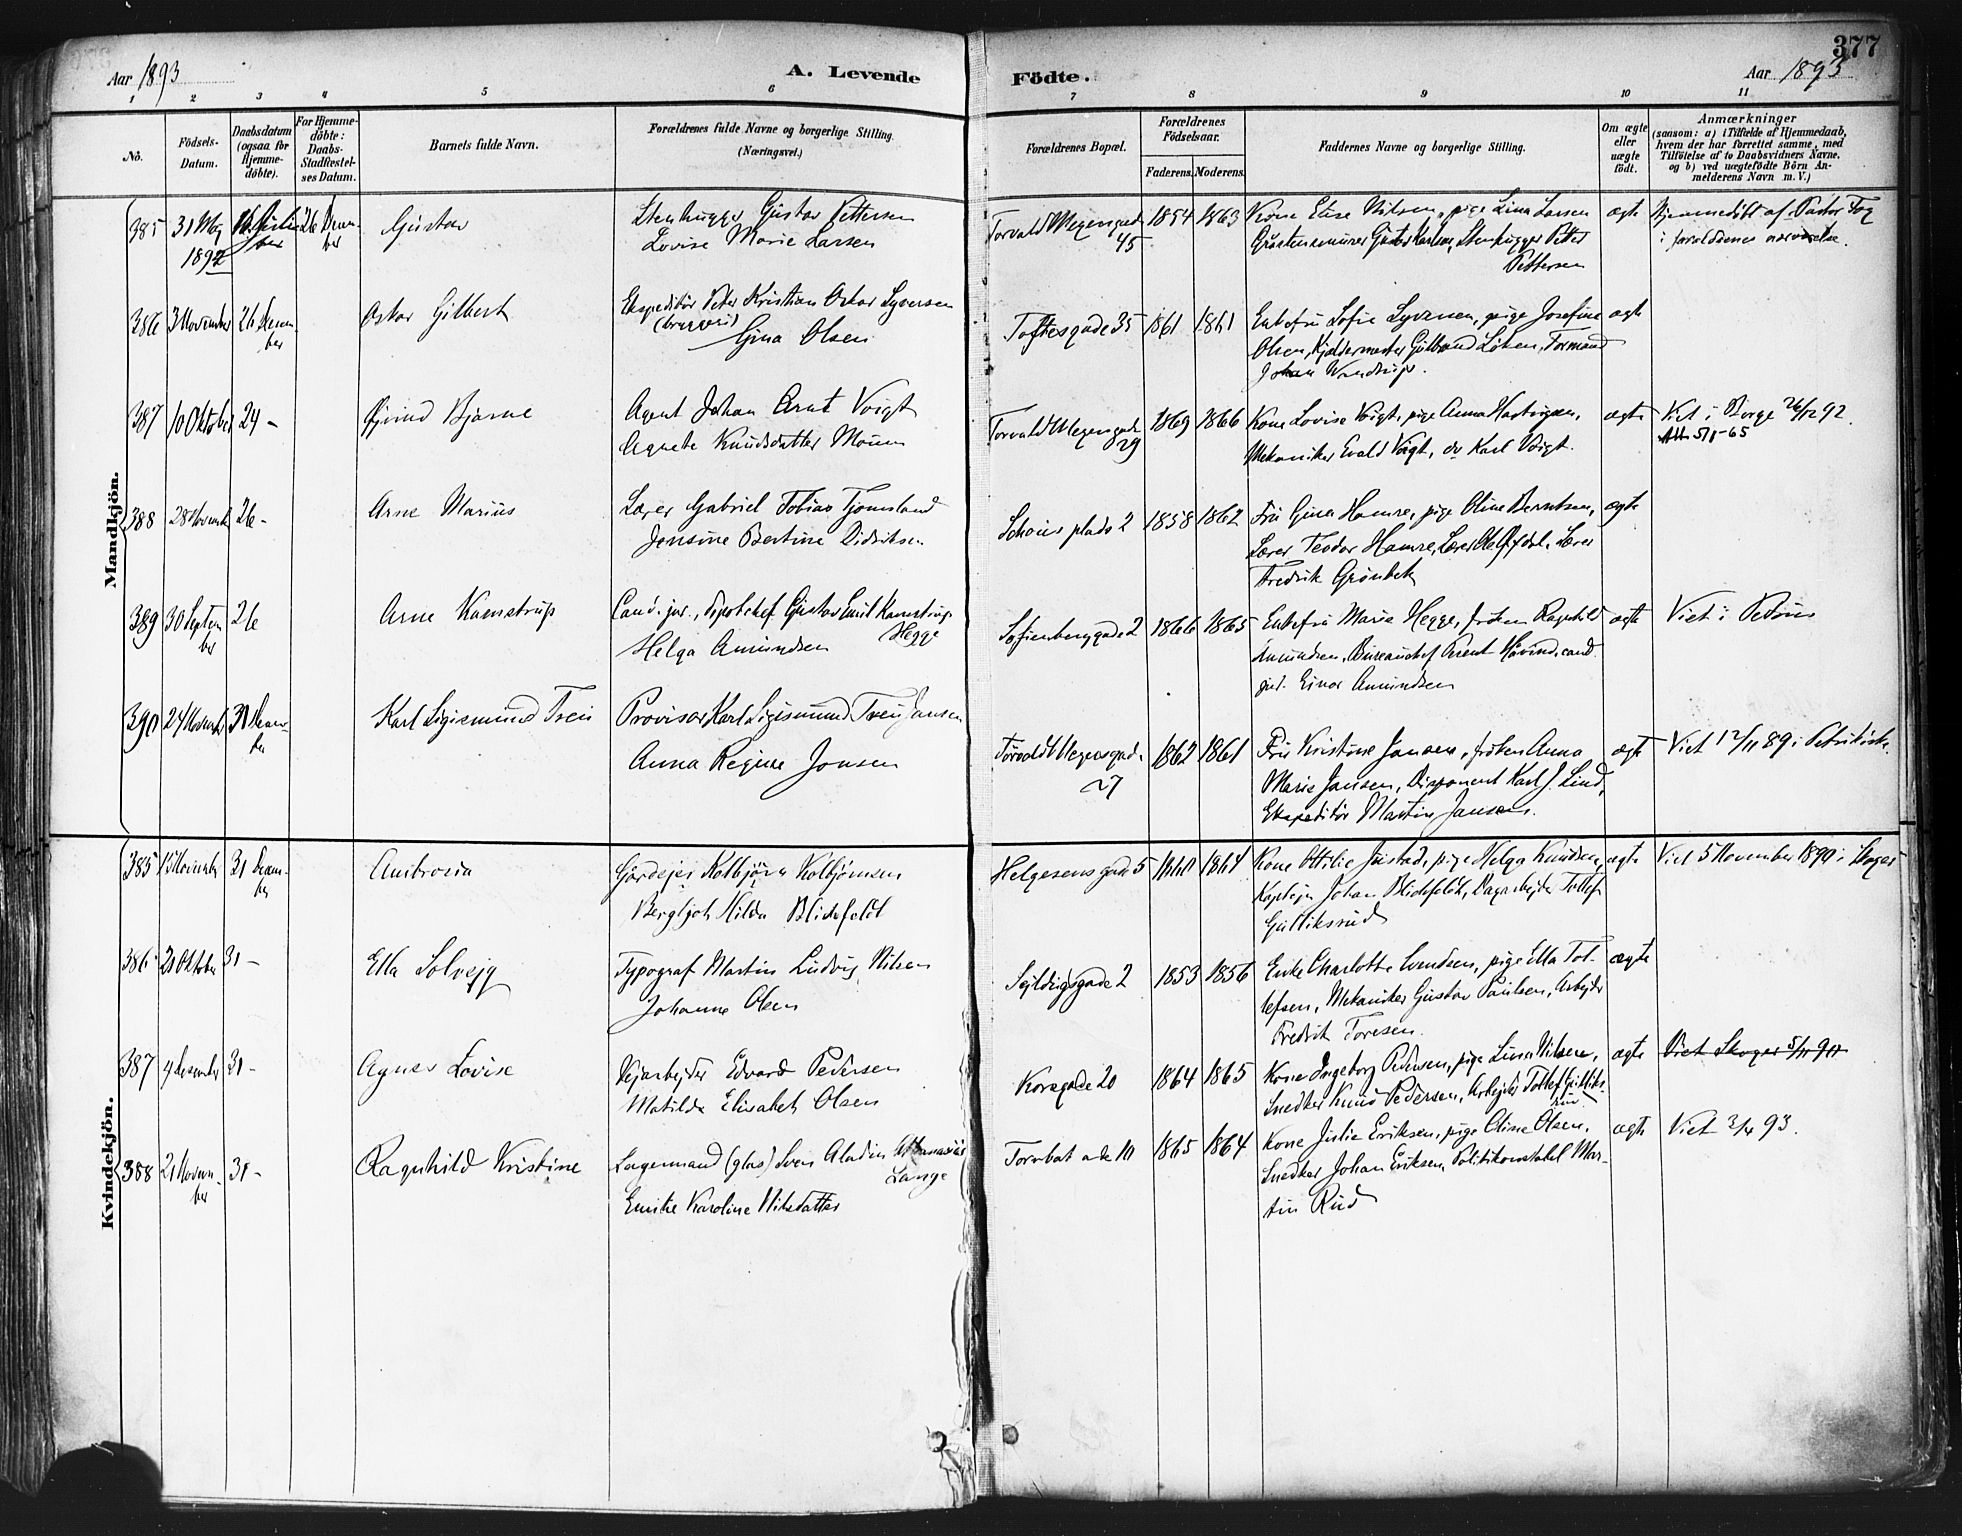 377
Aar 1893
A. Levende
Födte.
Aar 1893
1 2 3 4 5 6 7 8 9 10 11
No.
Födsels-
Datum.
Daabsdatum
(ogsaa for
Hjemme-
döbte).
For Hjemme-
döbte:
Daabs-
Stadfæstel-
ses Datum.
Barnets fulde Navn.
Forældrenes fulde Navne og borgerlige Stilling.
(Næringsvei.)
Forældrenes Bopæl.
Forældrenes
Födselsaar.
Faderens. Moderens.
Faddernes Navne og borgerlige Stilling.
Om ægte
eller
uægte
födt.
Anmærkninger
(saasom: a) i Tilfælde af Hjemmedaab,
hvem der har forrettet samme, med
Tilföielse af to Daabsvidners Navne,
og b) ved uægtefödte Börn An-
melderens Navn m. V.)
Mandkjön.
385 31 Maj
1892
26 Decem-
ber
Gustav
Stenhugger Gustav Pettersen
Lovise Marie Larsen
Torvald Meyersgade
45
1854 1863
Kone Elise Nilsen, pige Lina Larsen
Gustav Karlsen, Stenhugger Petter
Pettersen
ægte
Hjemmedöbt af Pastor
i forældrenes nærværelse.
386 3 November 26 Decem-
ber
Oskar Gilbert
Ekspeditör Peter Kristian Oskar Syversen
(bryggeri)
Gina Olsen
Toftesgade 35
1861 1861
Enkefru Sofie Syversen, pige Josefine
Olsen, Kjeldermester Gulbrand Löken, Formand
Johan
ægte
387 10 Oktober 24 -
Øivind Bjarne
Agent Johan Arnt Voigt
Agnete Knudsdatter Moum
Torvald Meyersgade
29
1869 1866
Kone Lovise Voigt, pige Anna Hartvigsen,
Mekaniker Evald Voigt, do Karl Voigt.
ægte
Viet i Borge 26/12 92.
388 28 Novemb 26 -
Arne Marius
Lærer Gabriel Tobias Tjomsland
Jensine Bertine Didriksen
Schous plads 2
1858 1862
Fru Gina Hamre, pige Oline Berntsen,
Lærer Teodor Hamre, Lærer Lærer
Fredrik Grönbek
ægte
389 30 Septem
ber
26
Arne Kamstrup
Cand. jur., depotchef Gustav Emil Kamstrup
Hegge
Helga Amundsen
Sofienberggade 2
1866 1865
Enkefru Marie Hegge, fröken Ragnhild
Amundsen, Bureauchef Hövind, cand.
jur. Einar Amundsen
ægte
Viet i
390 24 Novemb 31 Decem-
ber
Karl Sigismund Treu
Provisor Karl Sigismund Treu Jansen
Anna Regine Jonsen
Torvald Meyersgade
27
1862 1861
Fru Kristine Jansen, fröken Anna
Marie Jansen, Disponent Karl J. Lund,
Ekspeditör Martin Jansen.
ægte
Viet 12/11 89 i Petrikirk.
Kvindekjön.
385 15 November 31 Decem-
ber
Ambrosia
Gårdejer Kolbjörn Kolbjörnsen
Bergljot Hilda Blichfeldt
Helgesensgade 5
1860 1864
Kone Ottilie Juistad, pige Helga Knudsen,
Kaptejn Johan Blichfeldt, Dagarbejder Tollef
Gulliksrud
ægte
Viet 5 November 1890 i Skoger
386 21 Oktober 31 -
Ella Solvejg
Typograf Martin Ludvig Nilsen
Johanne Olsen
Seildugsgade 2
1853 1856
Enke Charlotte Svendsen, pige Ella Tol-
lefsen, Mekaniker Gustav Paulsen, Arbejder
Fredrik Toresen.
ægte
387 9 Desember 31 -
Agnes Lovise
Vejarbejder Edvard Pedersen
Matilde Elisabeth Olsen
Korsgade 20
1864 1865
Kone Ingeborg Pedersen, pige Lina Nilsen,
Snedker Knud Pedersen, Arbejder Tollef Gulliks-
rud
ægte
Viet Skoger 5/11 90
388 21 Novem-
ber
31 -
Ragnhild Kristine
Lagermand (glas) Sven Aladin Athanasius
Lange
Emilie Karoline Nilsdatter
10
1865 1864
Kone Julie Eriksen, pige Oline Olsen,
Snedker Johan Eriksen, Politikonstabel Mar-
tin Rud
ægte
Viet 2/4 93.